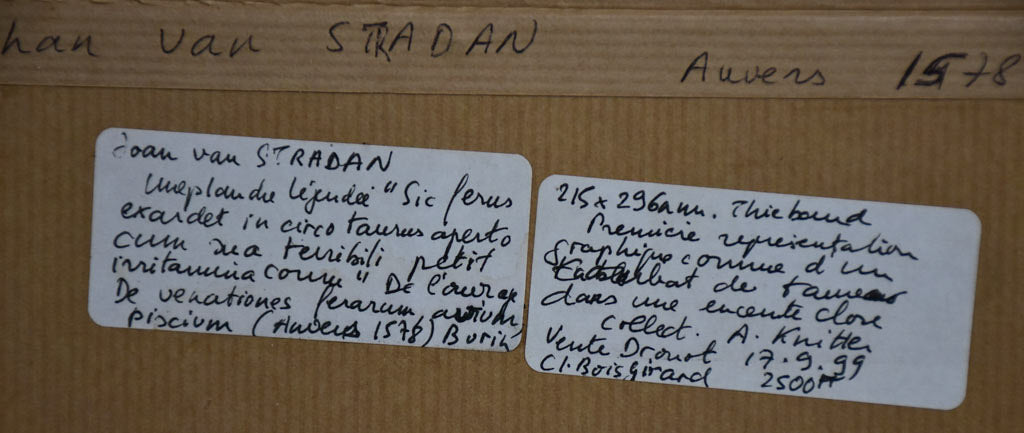 han van STRADAN
Anvers 1578
Joan van STRADAN
Une planche légendée "Sic ferus
exardet in circo taurus aperto
cum sua terribili petit
irritamina cornu" De l'ouvrage
De venationes ferarum, avium,
piscium (Anvers 1578) Burin
215 x 296 mm. Thiebaud
Première représentation
graphique connue d'un
Combat de taureaux
dans une enceinte close
Collect. A. Knitter
Vente Drouot 17.9.99
Cl. Boisgirard 2500 F